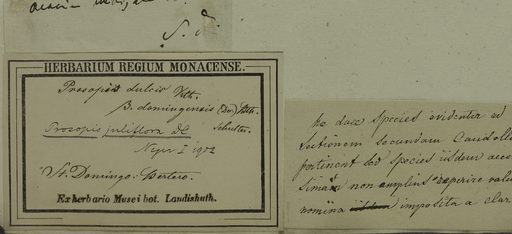 S. d.
HERBARIUM REGIUM MONACENSE.
Prosopis dulcis Kth.
β. domingensis (Dec) Kth.
Prosopis juliflora DC Schuster.
I 1912
St. Domingo: Bertero.
Ex herbario Musei bot. Landishuth.
hæ duæ species evidenter ad
Sectionem secundam Candolle
pertinent sed species iisdem
non amplius
nomina imposita a clar